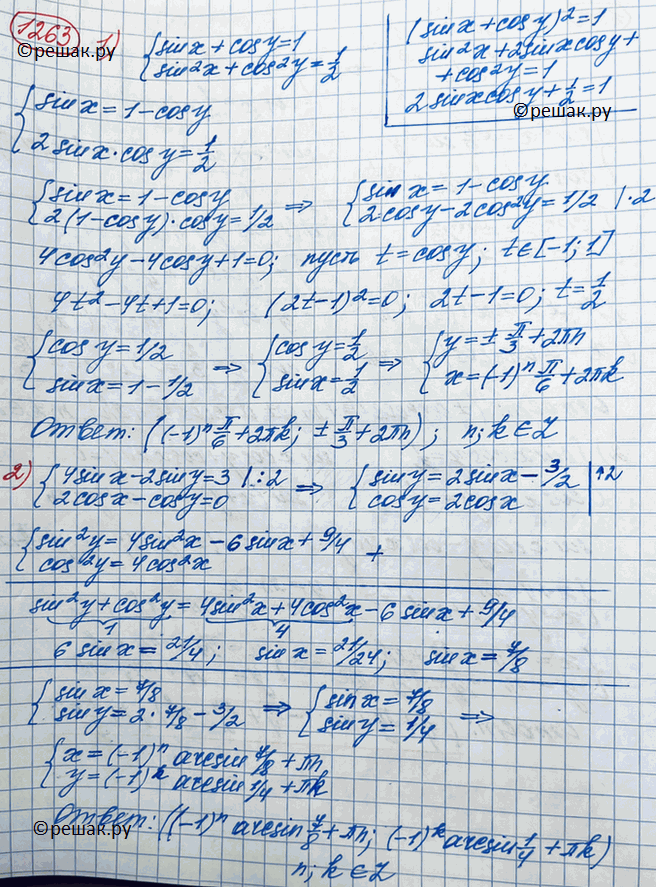 1263 1) { sin x + cos y = 1
{ sin²x + cos²y = 1/2
(sin x + cos y)² = 1
sin²x + 2 sin x cos y +
+ cos²y = 1
2 sin x cos y + 1/2 = 1
©решак.ру
©решак.ру
{ sin x = 1 - cos y
{ 2 sin x · cos y = 1/2
{ sin x = 1 - cos y
{ 2(1 - cos y) · cos y = 1/2
⇒ { sin x = 1 - cos y
{ 2 cos y - 2 cos²y = 1/2 | · 2
4 cos²y - 4 cos y + 1 = 0; пусть t = cos y; t ∈ [-1; 1]
4t² - 4t + 1 = 0; (2t - 1)² = 0; 2t - 1 = 0; t = 1/2
{ cos y = 1/2
{ sin x = 1 - 1/2
⇒ { cos y = 1/2
{ sin x = 1/2
⇒ { y = ± π/3 + 2πn
{ x = (-1)ⁿ π/6 + 2πk
Ответ: ((-1)ⁿ π/6 + 2πk; ± π/3 + 2πn); n; k ∈ Z
2) { 4 sin x - 2 sin y = 3 | : 2
{ 2 cos x - cos y = 0
⇒ { sin y = 2 sin x - 3/2
{ cos y = 2 cos x | ↑2
{ sin²y = 4 sin²x - 6 sin x + 9/4
{ cos²y = 4 cos²x +
sin²y + cos²y = 4 sin²x + 4 cos²x - 6 sin x + 9/4
1 4
6 sin x = 21/4; sin x = 21/24; sin x = 7/8
{ sin x = 7/8
{ sin y = 2 · 7/8 - 3/2
⇒ { sin x = 7/8
{ sin y = 1/4 ⇒
{ x = (-1)ⁿ arcsin 7/8 + πn
{ y = (-1)ᵏ arcsin 1/4 + πk
©решак.ру
Ответ: ((-1)ⁿ arcsin 7/8 + πn; (-1)ᵏ arcsin 1/4 + πk)
n; k ∈ Z